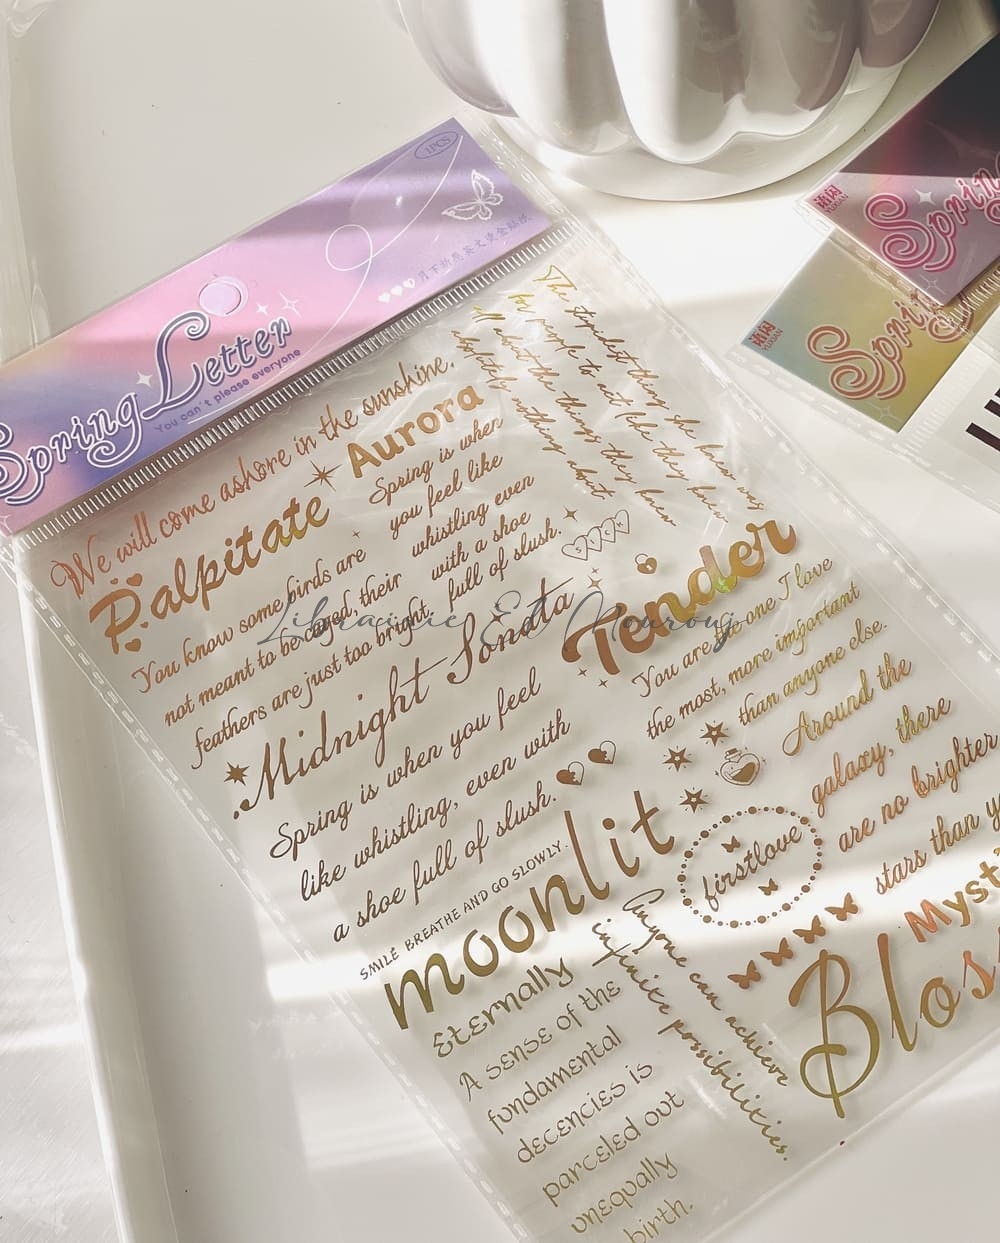 1PCS
月下祈愿英文烫金贴纸
Spring Letter
You can't please everyone
Spring
Spring
We will come ashore in the sunshine.
Palpitate
Aurora
Spring is when
you feel like
whistling even
with a shoe
full of slush.
You know some birds are
not meant to be caged, their
feathers are just too bright,
Midnight Sonata
Spring is when you feel
like whistling, even with
a shoe full of slush.
SMILE BREATHE AND GO SLOWLY.
moonlit
Eternally
A sense of the
fundamental
decencies is
parceled out
unequally
birth.
The stupidest thing she knew was
for people to act like they knew
all about the things they knew
absolutely nothing about
SICK
Tender
You are the one I love
the most, more important
than anyone else.
Around the
galaxy, there
are no brighter
stars than y
firstlove
Anyone can achieve
infinite possibilities.
Myst
Blos
Librairie El Mourouj